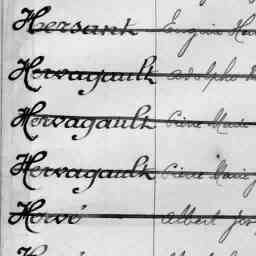 Hersant Eugène
Hervagault Adolphe
Hervagault Pierre Marie
Hervagault Pierre Marie
Hervé Albert